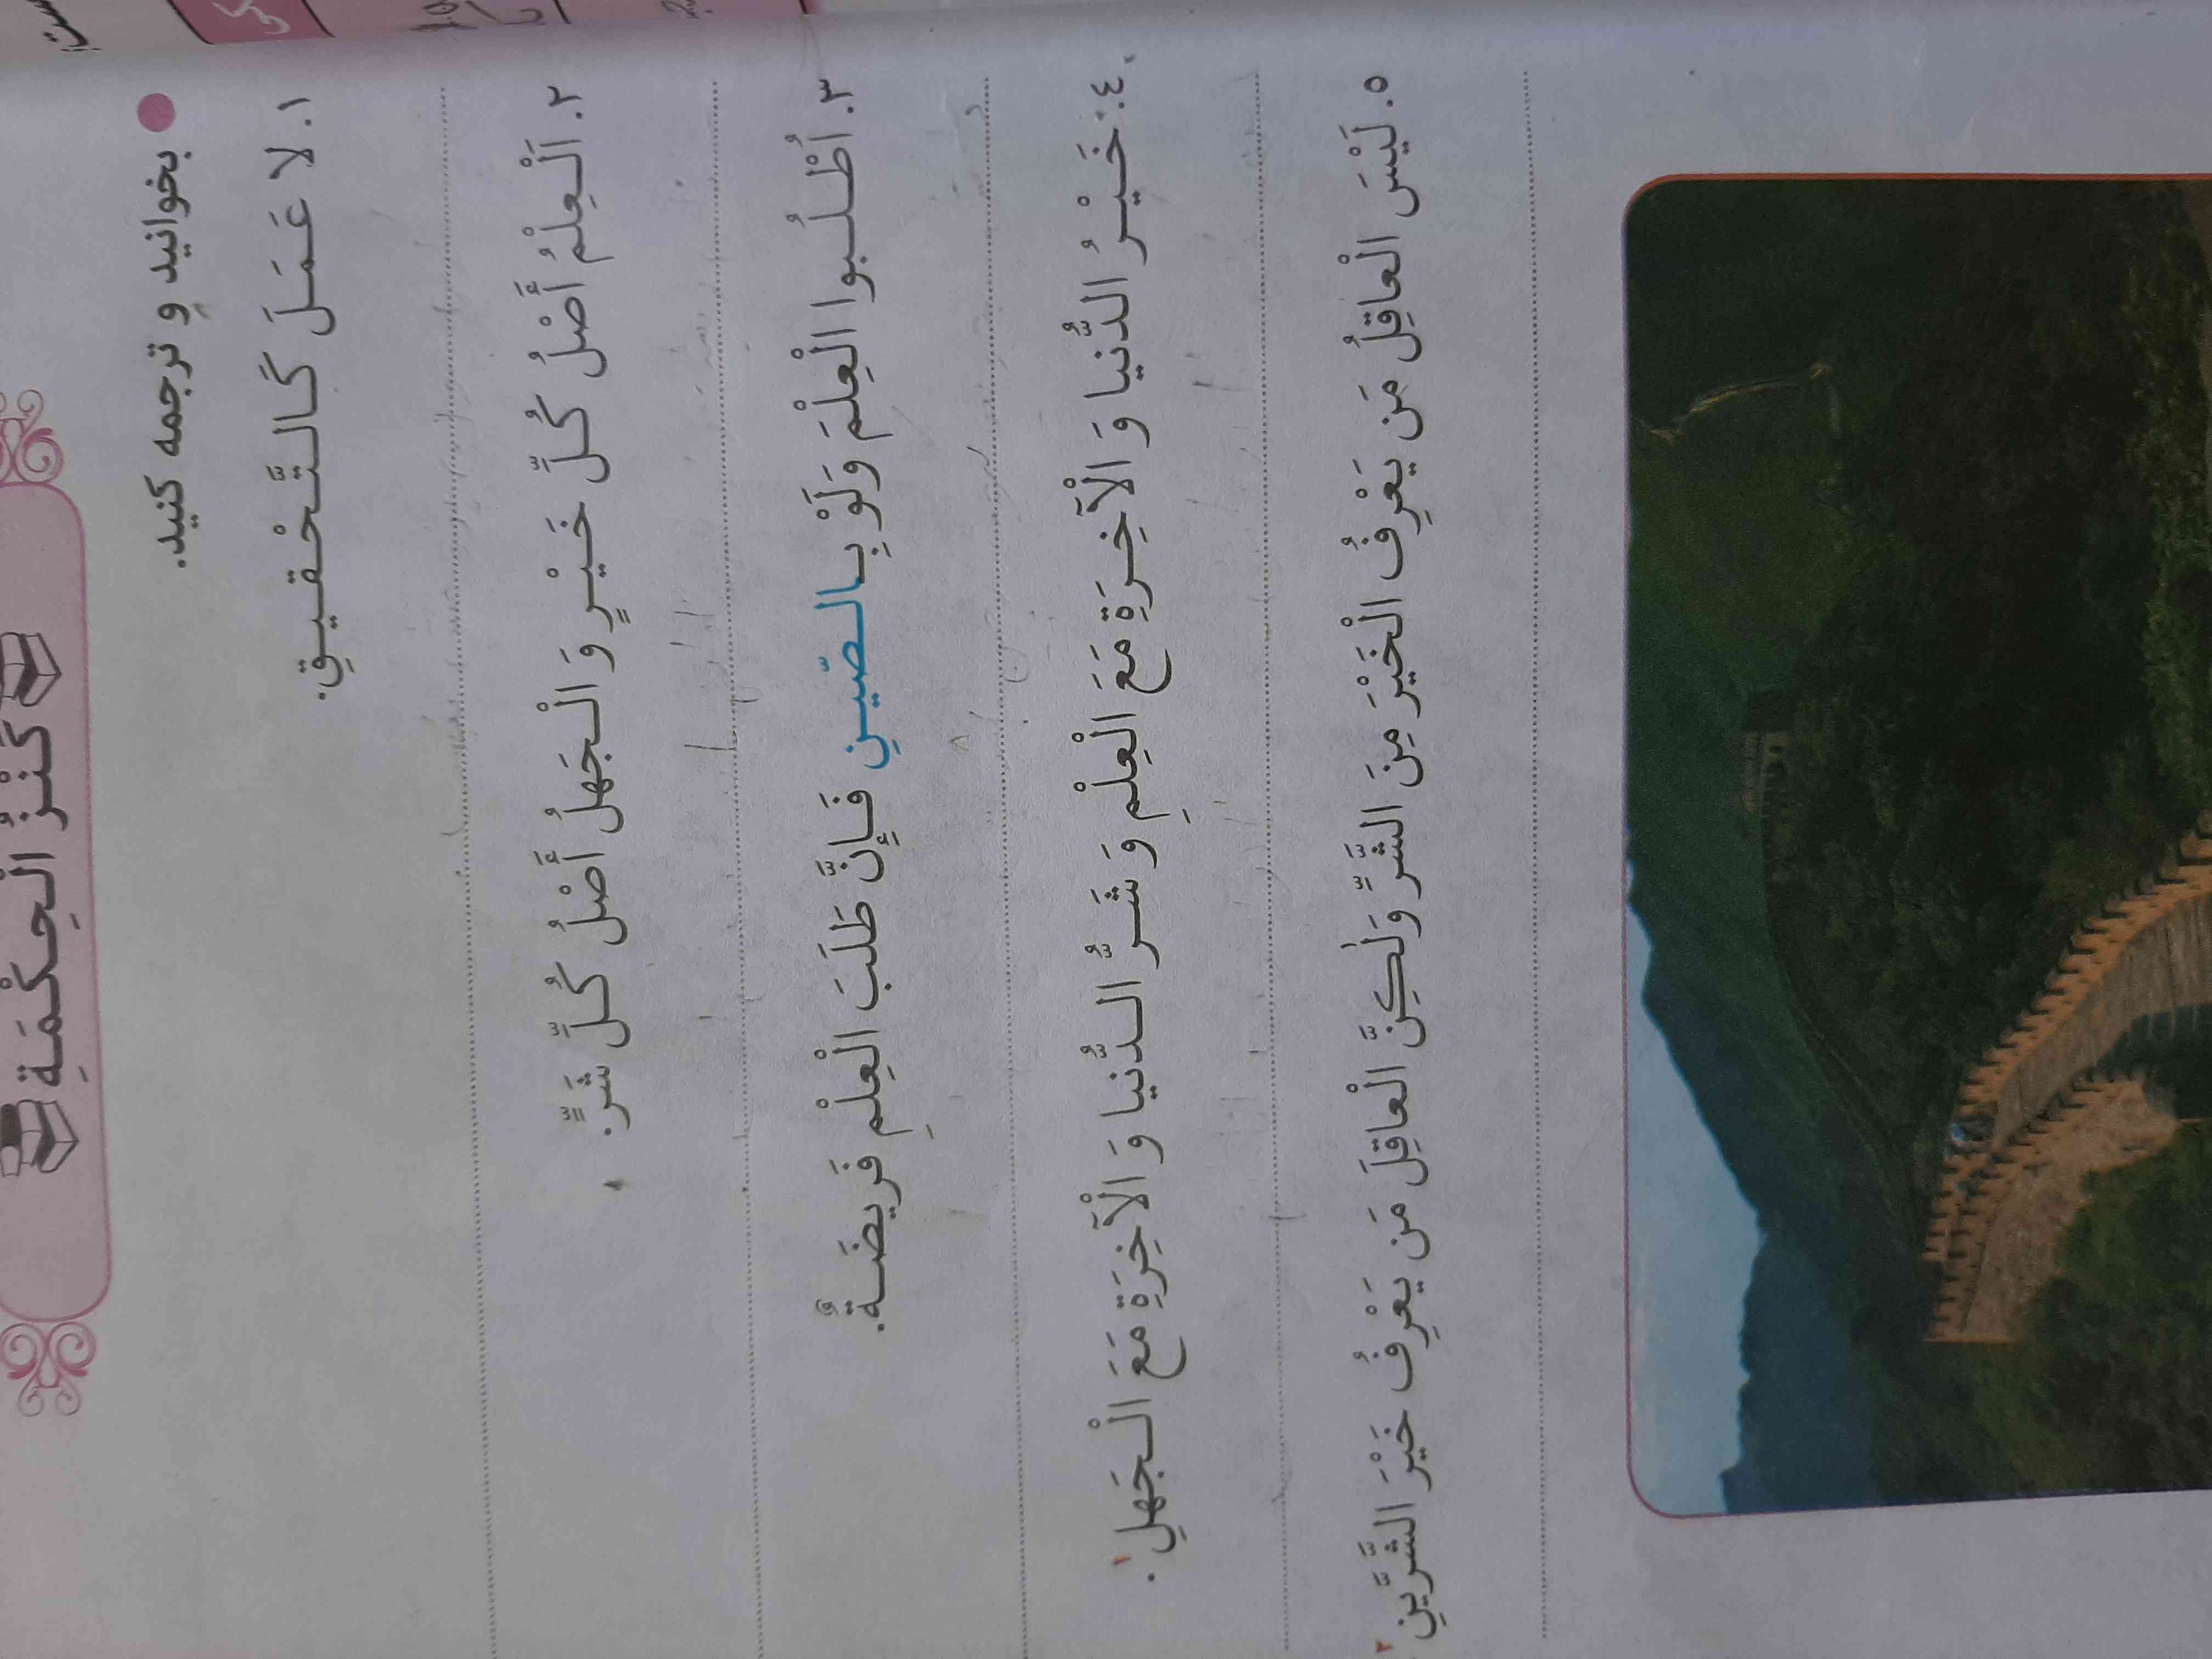 كَنْزُ الْحِكْمَةِ
بخوانید و ترجمه کنید.
١. لا عَمَلَ كَالتَّحْقيقِ.
٢. اَلْعِلْمُ أَصْلُ كُلِّ خَيْرٍ وَ الْجَهلُ أَصْلُ كُلِّ شَرٍّ.
٣. اُطْلُبوا الْعِلْمَ وَلَوْ بِالصّينِ فَإِنَّ طَلَبَ الْعِلْمِ فَريضَةٌ.
٤. خَيْرُ الدُّنيا وَ الْآخِرَةِ مَعَ الْعِلْمِ وَ شَرُّ الدُّنيا وَ الْآخِرَةِ مَعَ الْجَهلِ.١
٥. لَيْسَ الْعاقِلُ مَن يَعْرِفُ الْخَيْرَ مِنَ الشَّرِّ وَلٰكِنَّ الْعاقِلَ مَن يَعْرِفُ خَيْرَ الشَّرَّينِ٢